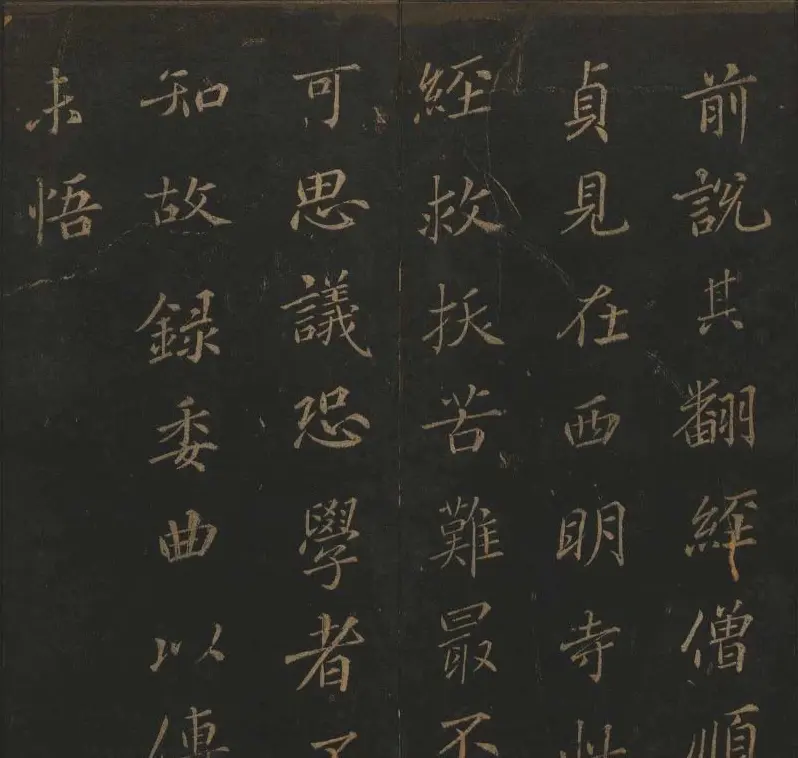 前說其翻經僧順
貞見在西明寺此
經救拔苦難最不
可思議恐學者
知故錄委曲以傳
未悟